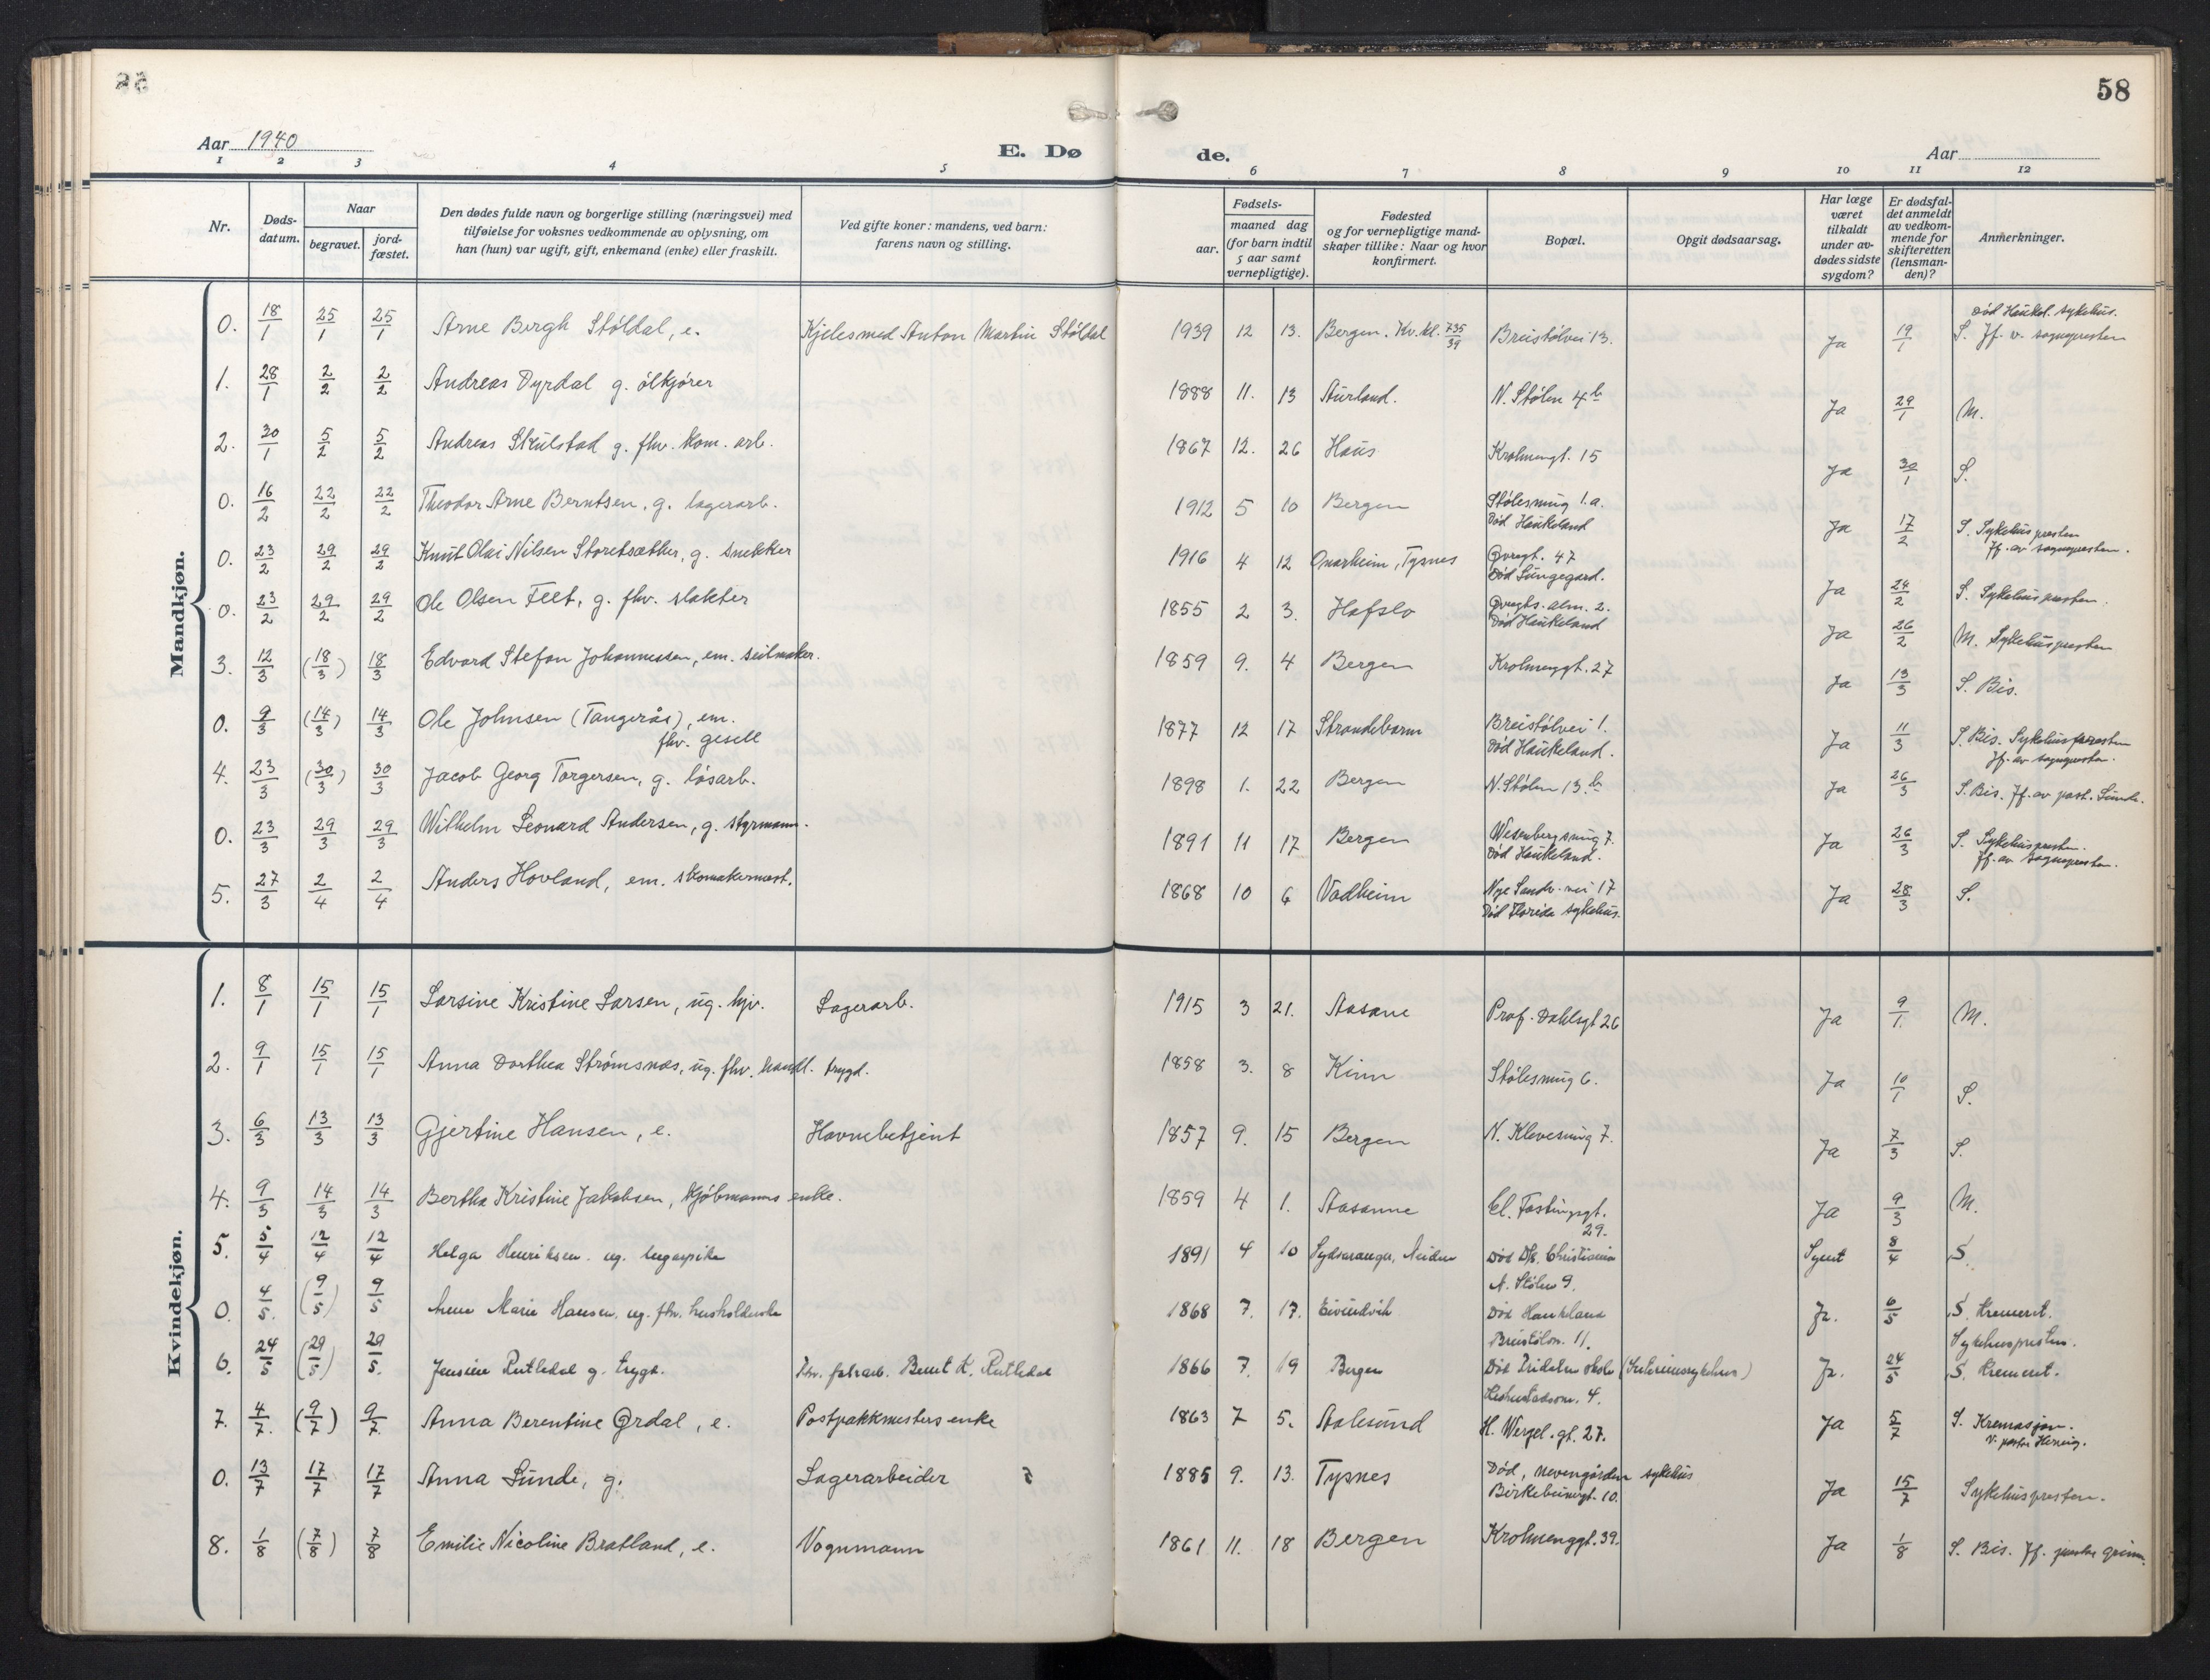 58
Aar 1940
E. Dø de.
Aar
1 2 3 4 5 6 7 8 9 10 11 12
Nr.
Døds-
datum.
Naar
begravet.
jord-
fæstet.
Den dødes fulde navn og borgerlige stilling (næringsvei) med
tilføielse for voksnes vedkommende av oplysning, om
han (hun) var ugift, gift, enkemand (enke) eller fraskilt.
Ved gifte koner: mandens, ved barn:
farens navn og stilling.
Fødsels-
aar.
maaned dag
(for barn indtil
5 aar samt
vernepligtige).
Fødested
og for vernepligtige mand-
skaper tillike: Naar og hvor
konfirmert.
Bopæl.
Opgit dødsaarsag.
Har læge
været
tilkaldt
under av-
dødes sidste
sygdom?
Er dødsfal-
det anmeldt
av vedkom-
mende for
skifteretten
(lensman-
den)?
Anmerkninger.
Mandkjøn.
død Haukel. sykehus.
0. 18/1 25/1 25/1 Arne Bergh Støldal, e. Kjelesmed Anton Martin Støldal 1939 12 13. Bergen. Kv. kl. 735/39 Breistølvei 13. Ja 19/1 S. Jf. v. sognepresten
1. 28/1 2/2 2/2 Andreas Dyrdal g. ølkjører 1888 11. 13 Aurland. N. Stølen 4 b Ja 29/1 M.
2. 30/1 5/2 5/2 Andreas Skulstad g. fhv. kom. arb. 1867 12. 26 Haus Krohnengt. 15 Ja 30/1 S.
0. 16/2 22/2 22/2 Theodor Arne Berntsen, g. lagerarb. 1912 5 10 Bergen Stølesmug 1.a. Død Haukeland Ja 17/2 S. Sykehuspresten
Jf. av sognepresten.
0. 23/2 29/2 29/2 Knut Olai Nilsen Storetsæther, g. snekker 1916 4 12 Onarheim, Tysnes Øvregt. 47 Død Lungegard. Ja 24/2 S. Sykehuspresten.
0. 23/2 29/2 29/2 Ole Olsen Feet, g. fhv. slakter 1855 2 3. Hafslo Øvregts. alm. 2. Død Haukeland Ja 26/2 M. Sykehuspresten
3. 12/3 (18/3) 18/3 Edvard Stefan Johannessen, em. seilmaker. 1859 9. 4 Bergen Krohnenggt. 27 Ja 13/3 S. Bis.
0. 9/3 (14/3) 14/3 Ole Johnsen (Tangerås), em.
fhv. gesell 1877 12 17 Strandebarm Breistølvei 1. Død Haukeland. Ja 11/3 S. Bis. Sykehuspresten
Jf. av sognepresten.
4. 23/3 (30/3) 30/3 Jacob Georg Torgersen, g. løsarb. 1898 1. 22 Bergen N. Stølen 13 b Ja 26/3 S. Bis. Jf. av past. Sunde.
0. 23/3 29/3 29/3 Wilhelm Leonard Andersen, g. styrmann. 1891 11 17 Bergen Wesenbergsmug 7. Død Haukeland. Ja 26/3 S. Sykehuspresten.
Jf. av sognepresten.
5. 27/3 2/4 2/4 Anders Hovland, em. skomakermest. 1868 10 6 Vadheim Nye Sandv. vei 17 Død Florida sykehus. Ja 28/3 S.
Kvindekjøn.
1. 8/1 15/1 15/1 Larsine Kristine Larsen, ug. hjv. Lagerarb. 1915 3 21. Aasane Prof. Dahlsgt 26 Ja 9/1. M.
2. 9/1 15/1 15/1 Anna Dorthea Strømsnes, ug. fhv. handl. trygd. 1858 3. 8 Kinn Stølesmug 6. Ja 10/1 S.
3. 6/3 13/3 13/3 Gjertine Hansen, e. Havnebetjent 1857 9. 15 Bergen N. Klevesmug 7. Ja 7/3 S.
4. 9/3 14/3 14/3 Bertha Kristine Jakobsen, kjøbmanns enke. 1859 4 1. Aasanne Cl. Fastingsgt.
29. Ja 9/3 M.
5. 5/4 12/4 12/4 Helga Henriksen. ug. 1891 4 10 Sydvaranger, Neiden Død Christiania
N. Stølen 9. 8/4 S.
0. 4/5. (9/5) 9/5 Anne Marie Hansen, ug. fhv. husholderske 1868 7. 17. Eivindvik Død Haukeland
Breistølsv. 11. Ja. 6/5 S. Kremert.
Sykehuspresten.
6. 24/5 (29/5) 29/5. Jensine Rutledal g. trygd. Fhv. fabr.arb. Bernt K. Rutledal 1866 7. 19 Bergen Død Iridalen skole (Interimssykehus)
4. Ja. 24/5 S. Kremert.
7. 4/7. (9/7) 9/7. Anna Berentine Ørdal, e. Postpakkmesters enke 1863 7 5. Aalesund H. Wergel. gt. 27. Ja 5/7 S. Kremasjon.
v. pastor Herning.
0. 13/7 17/7 17/7 Anna Sunde, g. Lagerarbeider 1885 9. 13. Tysnes Død, Nevengården sykehus
Birkebeinergt. 10. Ja 15/7 Sykehuspresten.
8. 1/8 (7/8) 7/8 Emilie Nicoline Bratland, e. Vognmann 1861 11. 18 Bergen Krohnenggt. 39. Ja 1/8 S. Bis. Jf. pastor Grimn.